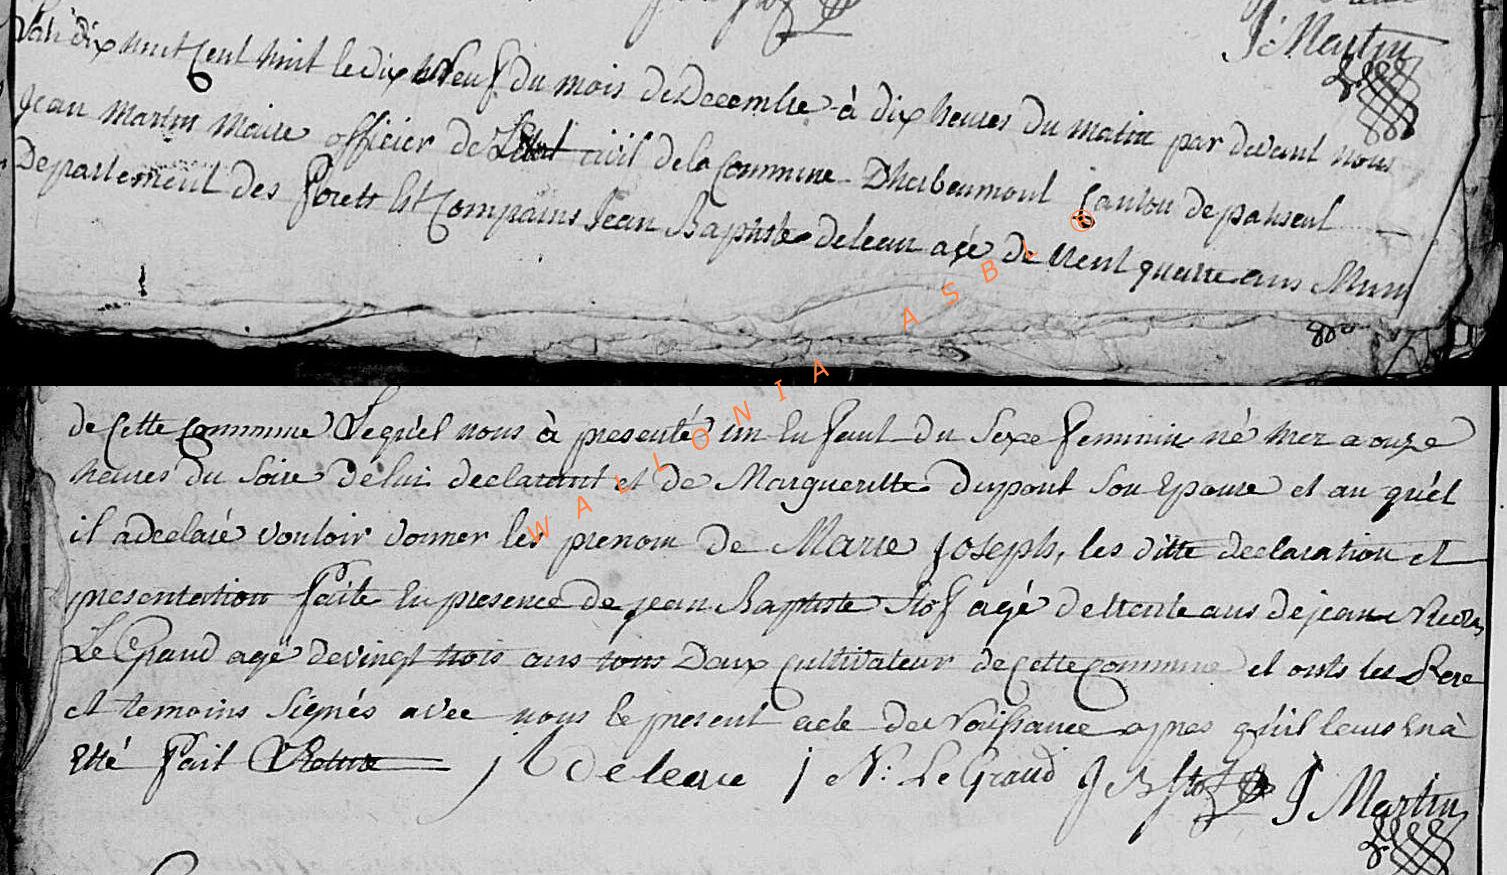 J Martin
Lan dix huit Cent huit le dix Neuf du mois de Decembre à dix heures du matin par devant nous
Jean Martin Maire officier de Létat civil de la Commune Dherbeumont Canton de paliseul
Departement des Forets Est Comparus Jean Baptiste deleau agé de trent quatre ans
de Cette Commune Lequel nous à presenté un Enfant du Sexe feminin né hier a onze
heures du Soire de lui declarant et de Margueritte dupont Son Epouse et au quel
il a declaré vouloir donner les prenom de Marie Joseph, les ditte declaration et
presentation faite En presence de jean Baptiste Stof agé de trente ans de jean Nicolas
Le Grand agé de vingt trois ans tous Deux Cultivateur de Cette Commune et onts les Pere
et temoins Signés avec nous le present acte de Naissance apres qu'il leurs En à
Etté fait
J B deleau J N: Le Grand J B Stof J Martin
WALLONIA ASBL ®